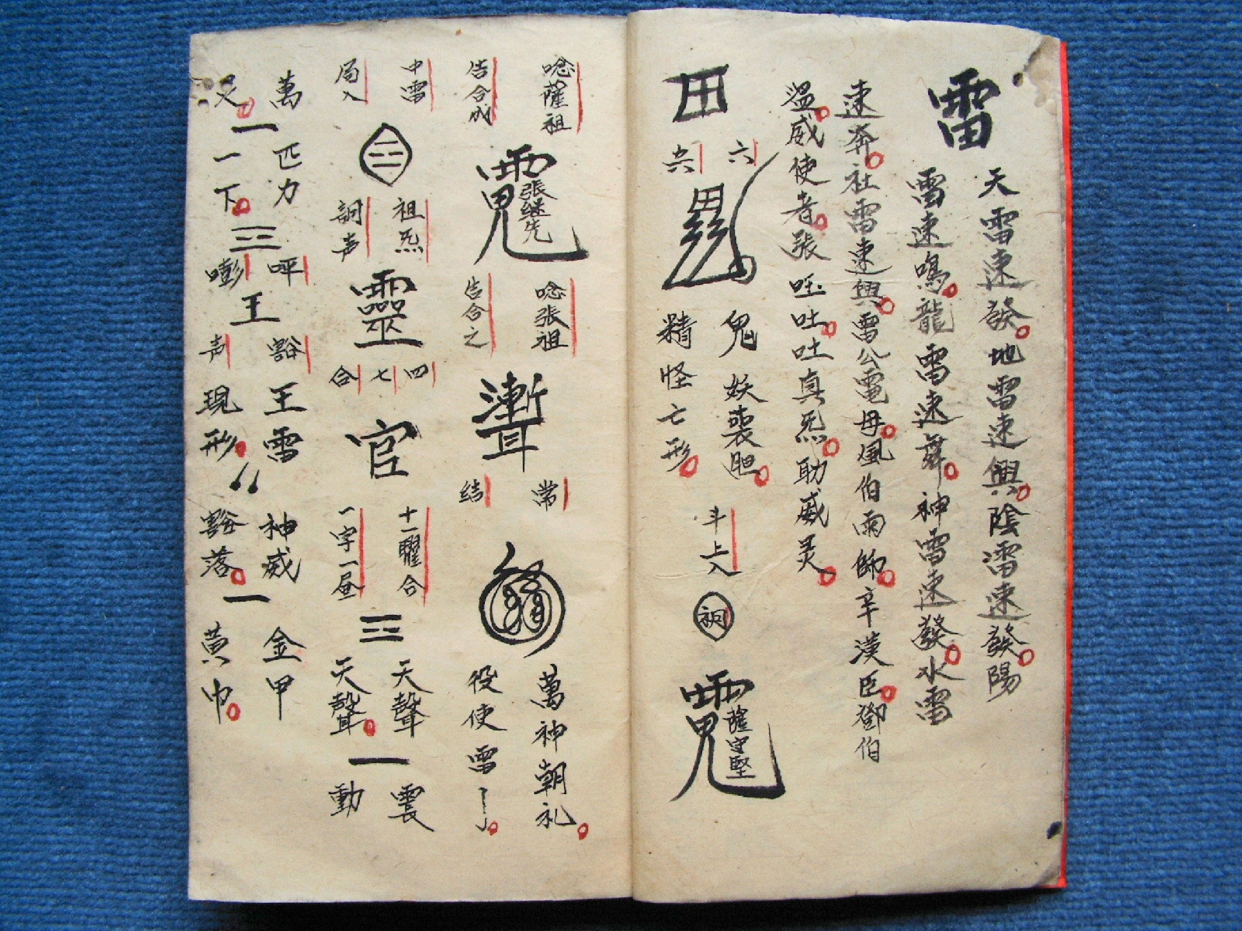 雷
天雷速發地雷速興陰雷速發陽
雷速鳴龍雷速奔神雷速發水雷
速奔社雷速興雷公電母風伯雨師辛漢臣鄧伯
溫威使者張吒吐吐真炁助威灵
田
六
六
鬼妖喪胆
精怪亡形
斗上入
薩守堅
唸薩祖
告合成
張繼先
唸張祖
告合之
聻
常
结
萬神朝礼
役使雷
中雷
局入
三
祖炁
詞声
靈
四
七
合
官
十一曜合
一字一届
三
天聲
天聲
一
震
動
萬匹力
尺
一
一下
三
呯
嘭
王
豁
声
王雷
現形
神威
豁落
一
金甲
黃巾